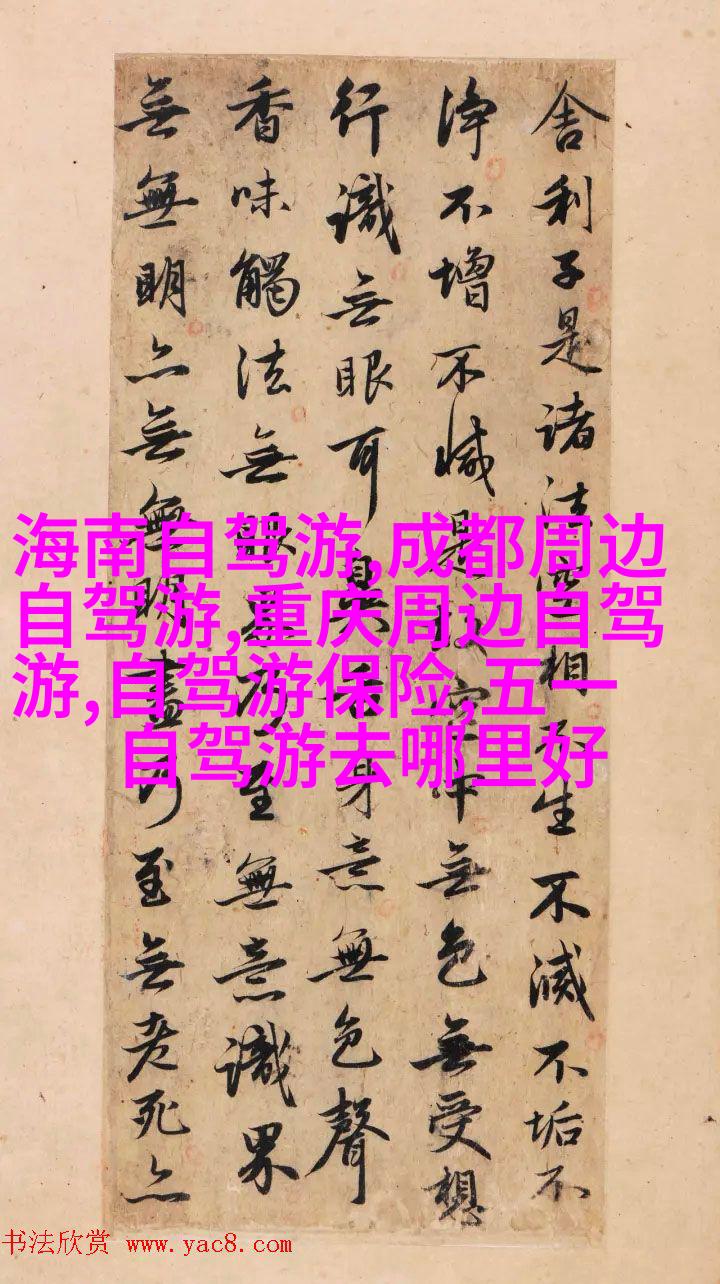 舍利子是諸法空相不生不滅不垢不
淨不增不減是故空中無色無受想
行識無眼耳鼻舌身意無色聲
香味觸法無眼界乃至無意識界
無無明亦無無明盡乃至無老死亦
海南自驾游,成都周边
自驾游,重庆周边自驾
游,自驾游保险,五一
自驾游去哪里好
书法欣赏 www.yac8.com